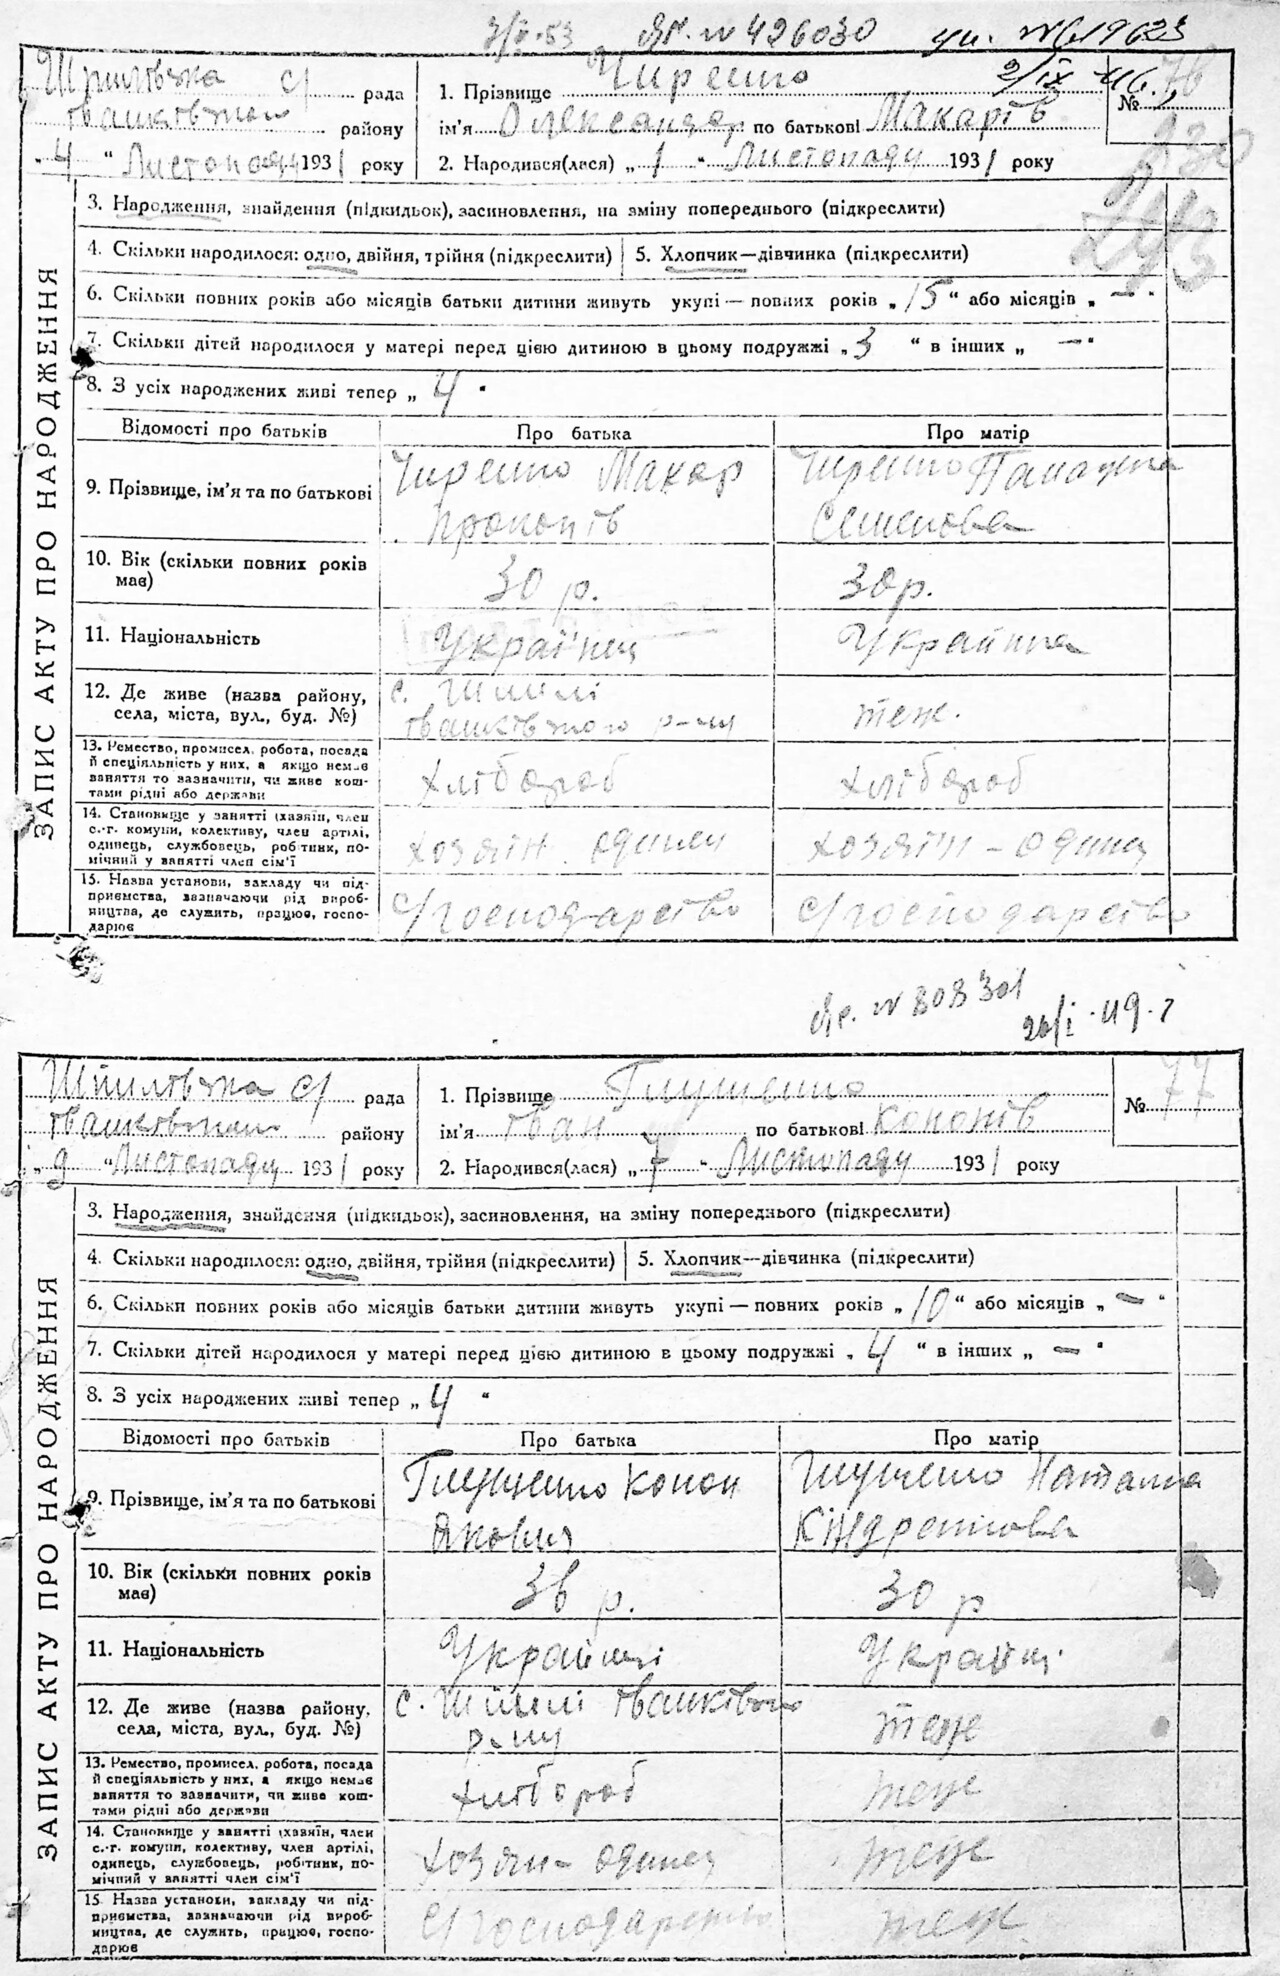 3/V-53 Яг. № 426030
2/IX 46.
Шпилівська с/ рада
Іваньківського району
„4“ Листопаду 1931 року
1. Прізвище Чиренко
ім'я Олександр по батькові Макарів
2. Народився(лася) „1“ Листопаду 1931 року
№ 76
ЗАПИС АКТУ ПРО НАРОДЖЕННЯ
3. Народження, знайдення (підкидьок), засиновлення, на зміну попереднього (підкреслити)
4. Скільки народилося: одно, двійня, трійня (підкреслити)
5. Хлопчик—дівчинка (підкреслити)
6. Скільки повних років або місяців батьки дитини живуть укупі — повних років „15“ або місяців „—“
7. Скільки дітей народилося у матері перед цією дитиною в цьому подружжі „3“ в інших „—“
8. З усіх народжених живі тепер „4“
Відомості про батьків
Про батька
Про матір
9. Прізвище, ім'я та по батькові
Чиренко Макар
Прокопів
Чиренко
Семенова
10. Вік (скільки повних років
має)
30 р.
30 р.
11. Національність
Українец
Українка
12. Де живе (назва району,
села, міста, вул., буд. №)
с. Шпилі
Іваньківського р-ну
теж.
13. Ремество, промисел, робота, посада
й спеціяльність у них, а якщо немає
заняття то зазначити, чи живе кош-
тами рідні або держави
хлібороб
хлібороб
14. Становище у занятті (хазяїн, член
с.-г. комуни, колективу, член артілі,
одинець, службовець, робітник, по-
мічний у занятті член сім'ї
хозяїн одинец
хозяїн - одинец
15. Назва установи, закладу чи під-
приємства, зазначаючи рід вироб-
ництва, де служить, працює, госпо-
дарює
с/господарство
с/господарство
Яг. № 308301
26/I-49 г
Шпилівська с/ рада
Іваньківського району
„9“ Листопаду 1931 року
1. Прізвище Глущенко
ім'я Іван по батькові Кононів
2. Народився(лася) „7“ Листопаду 1931 року
№ 77
ЗАПИС АКТУ ПРО НАРОДЖЕННЯ
3. Народження, знайдення (підкидьок), засиновлення, на зміну попереднього (підкреслити)
4. Скільки народилося: одно, двійня, трійня (підкреслити)
5. Хлопчик—дівчинка (підкреслити)
6. Скільки повних років або місяців батьки дитини живуть укупі — повних років „10“ або місяців „—“
7. Скільки дітей народилося у матері перед цією дитиною в цьому подружжі „4“ в інших „—“
8. З усіх народжених живі тепер „4“
Відомості про батьків
Про батька
Про матір
9. Прізвище, ім'я та по батькові
Глущенко Конон
Глущенко Наталка
Кіндратова
10. Вік (скільки повних років
має)
36 р.
30 р
11. Національність
12. Де живе (назва району,
села, міста, вул., буд. №)
с. Шпилі Іваньківського
р-ну
теж
13. Ремество, промисел, робота, посада
й спеціяльність у них, а якщо немає
заняття то зазначити, чи живе кош-
тами рідні або держави
хлібороб
теж
14. Становище у занятті (хазяїн, член
с.-г. комуни, колективу, член артілі,
одинець, службовець, робітник, по-
мічний у занятті член сім'ї
хозяїн - одинец
теж
15. Назва установи, закладу чи під-
приємства, зазначаючи рід вироб-
ництва, де служить, працює, госпо-
дарює
с/господарство
теж